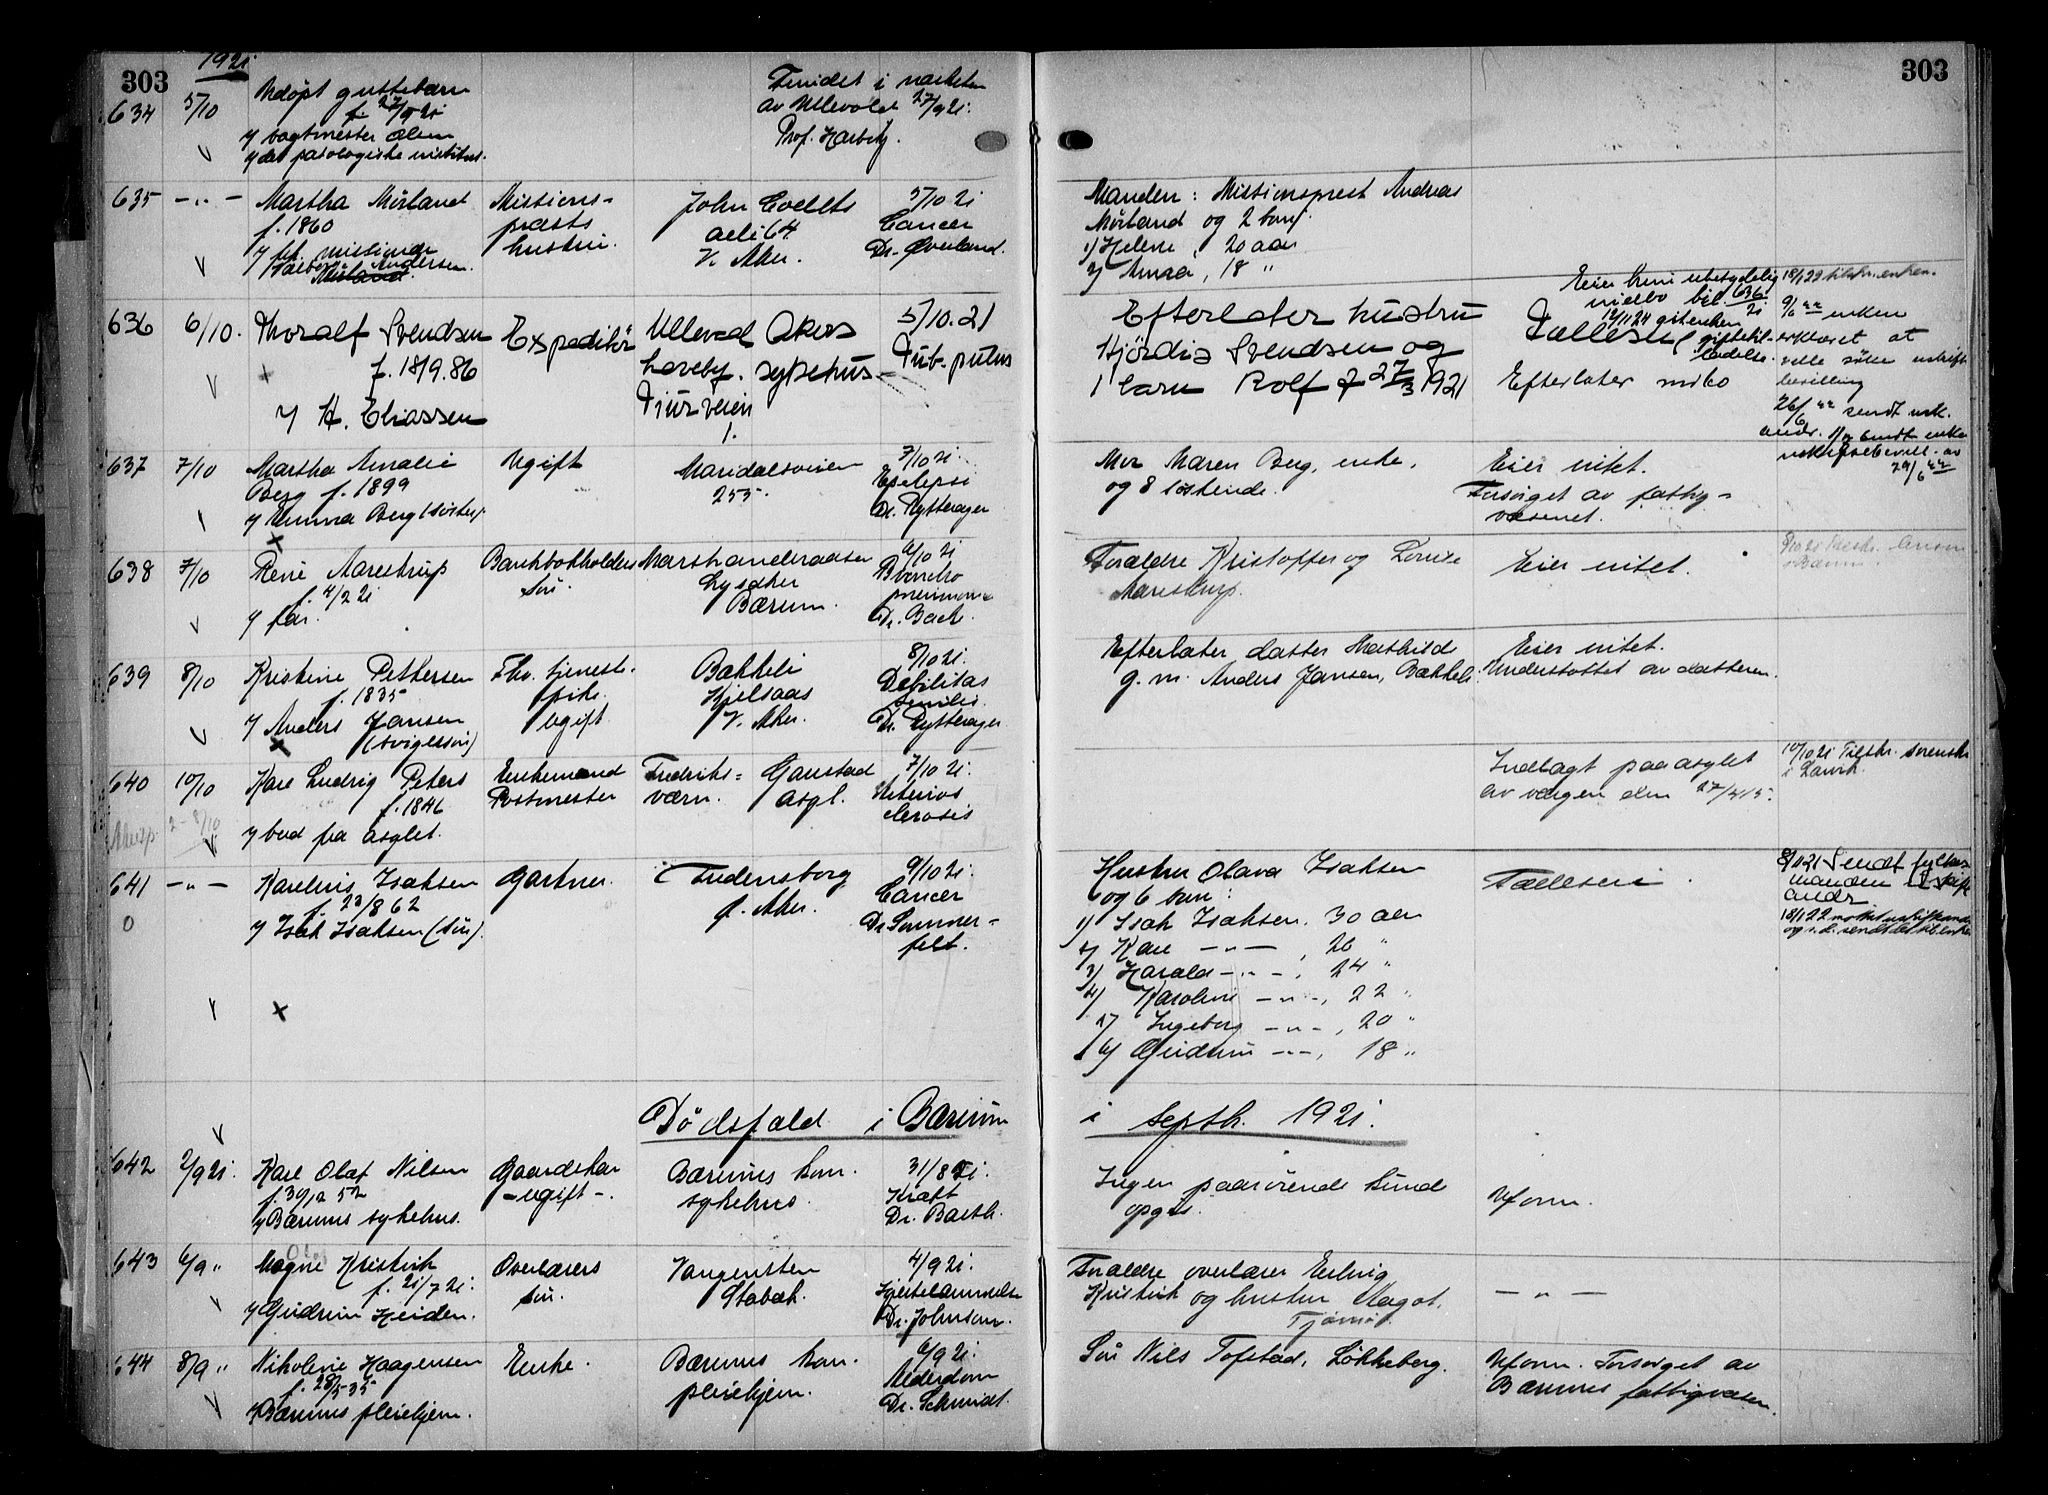 303
303
1921
634
5/10
Udøpt guttebarn
f. 27/9 21
v/ vagtmester
v/ det patologiske institut.
Fundet i nærheten
av Ullevold 27/9 21.
Prof. Harbitz.
635
— " —
Martha Mörland
f. 1860
v/ frk.
Andersen.
Missions-
præsts
hustru.
John Colletts
alle 64
V. Aker.
5/10 21
Cancer
Dr. Överland.
Manden: Missionsprest Andreas
Mörland og 2 barn:
1) Helene, 20 aar
2) Anna, 18 "
636
6/10.
Thoralf Svendsen
f. 18/9.86
v/ H. Eliassen
Expeditör
Ullevål
haveby.
1.
Akers
sykehus
5/10.21
Tub. pulm
Efterlater hustru
Hjördis Svendsen og
1 barn Rolf f 27/3 1921
Eier kun ubetydelig
indbo bil. 636/21
Fælleseie
Efterlater indbo
9/6 22 enken
erklæret at
ville söke uskifte-
bevilling
26/6 22 sendt
637
7/10
Martha Amalie
Berg f. 1899
v/ Emma Berg (søster).
Ugift
Maridalsveien
255.
7/10 21.
Epilepsi
Dr. Rytterager
Mor Maren Berg, enke,
og 8 söskende.
Eier intet.
Forsörget av fattig-
væsenet.
638
7/10
René Aarestrup
f. 4/2 21
v/ far.
Bankbokholders
sön.
Lysaker
Bærum.
6/10 21
Broncho
pneumoni
Dr. Bach.
Forældre Kristoffer og Louise
Aarestrup.
Eier intet.
639
8/10
Kristine Pettersen
f. 1835
v/ Anders Jansen
(svigersön)
Fhv. tjeneste-
pike.
ugift.
Bakkeli
Kjelsaas
V. Aker.
8/10 21.
Debilitas
senilis.
Dr. Rytterager
Efterlater datter Mathilde
g. m. Anders Jansen, Bakkeli.
Eier intet.
Understöttet av datteren.
640
10/10
Karl Ludvig Peters
f. 1846
v/ bud fra asylet.
2 - 8/10
Enkemand
Postmester
Fredriks-
værn.
Gaustad
asyl.
7/10 21.
Arterios
clerosis
Indlagt paa asylet
av vergen den 27/4 15.
10/10 21 Tilskr. sorenskr.
i Larvik.
641
— " —
0
Karelius Isaksen
f. 23/8 62
v/ Isak Isaksen (sön).
Gartner.
Fredensborg
Ö. Aker.
9/10 21.
Cancer
Dr. Sommer-
felt.
Hustru Olava Isaksen
og 6 barn:
1) Isak Isaksen. 30 aar
2) Karl — " —, 26 "
3) Harald — " —, 24 "
4) Karoline — " —, 22 "
5) Ingeborg — " —, 20 "
6) Gudrun — " —, 18 "
Fælleseie
Dödsfald i Bærum
i septbr. 1921.
642
2/9 21.
Karl Olaf Nilsen
f. 30/12 52
v/ Bærums sykehus.
Gaardskar
- ugift -.
Bærums kom.
sykehus.
31/8 21.
Kræft
Dr. Barth.
Ingen paarörende kunde
opgis.
Uform.
643
6/9 "
Magne Kristvik
f. 21/7 21.
v/ Gudrun Heiden.
Overlærers
sön.
Vangensten
Stabæk.
4/9 21.
Hjertelammelse
Dr. Johnson.
Forældre overlærer Erling
Kristvik og hustru Magot.
— " —
644
8/9 "
Nikoline Haagensen
f. 28/5 35
v/ Bærums pleiehjem.
Enke.
Bærums kom.
pleiehjem.
6/9 21.
Alderdom
Dr. Schmidt.
Sön Nils Tofstad, Lökkeberg.
Uform. Forsörget av
Bærums fattigvæsen.